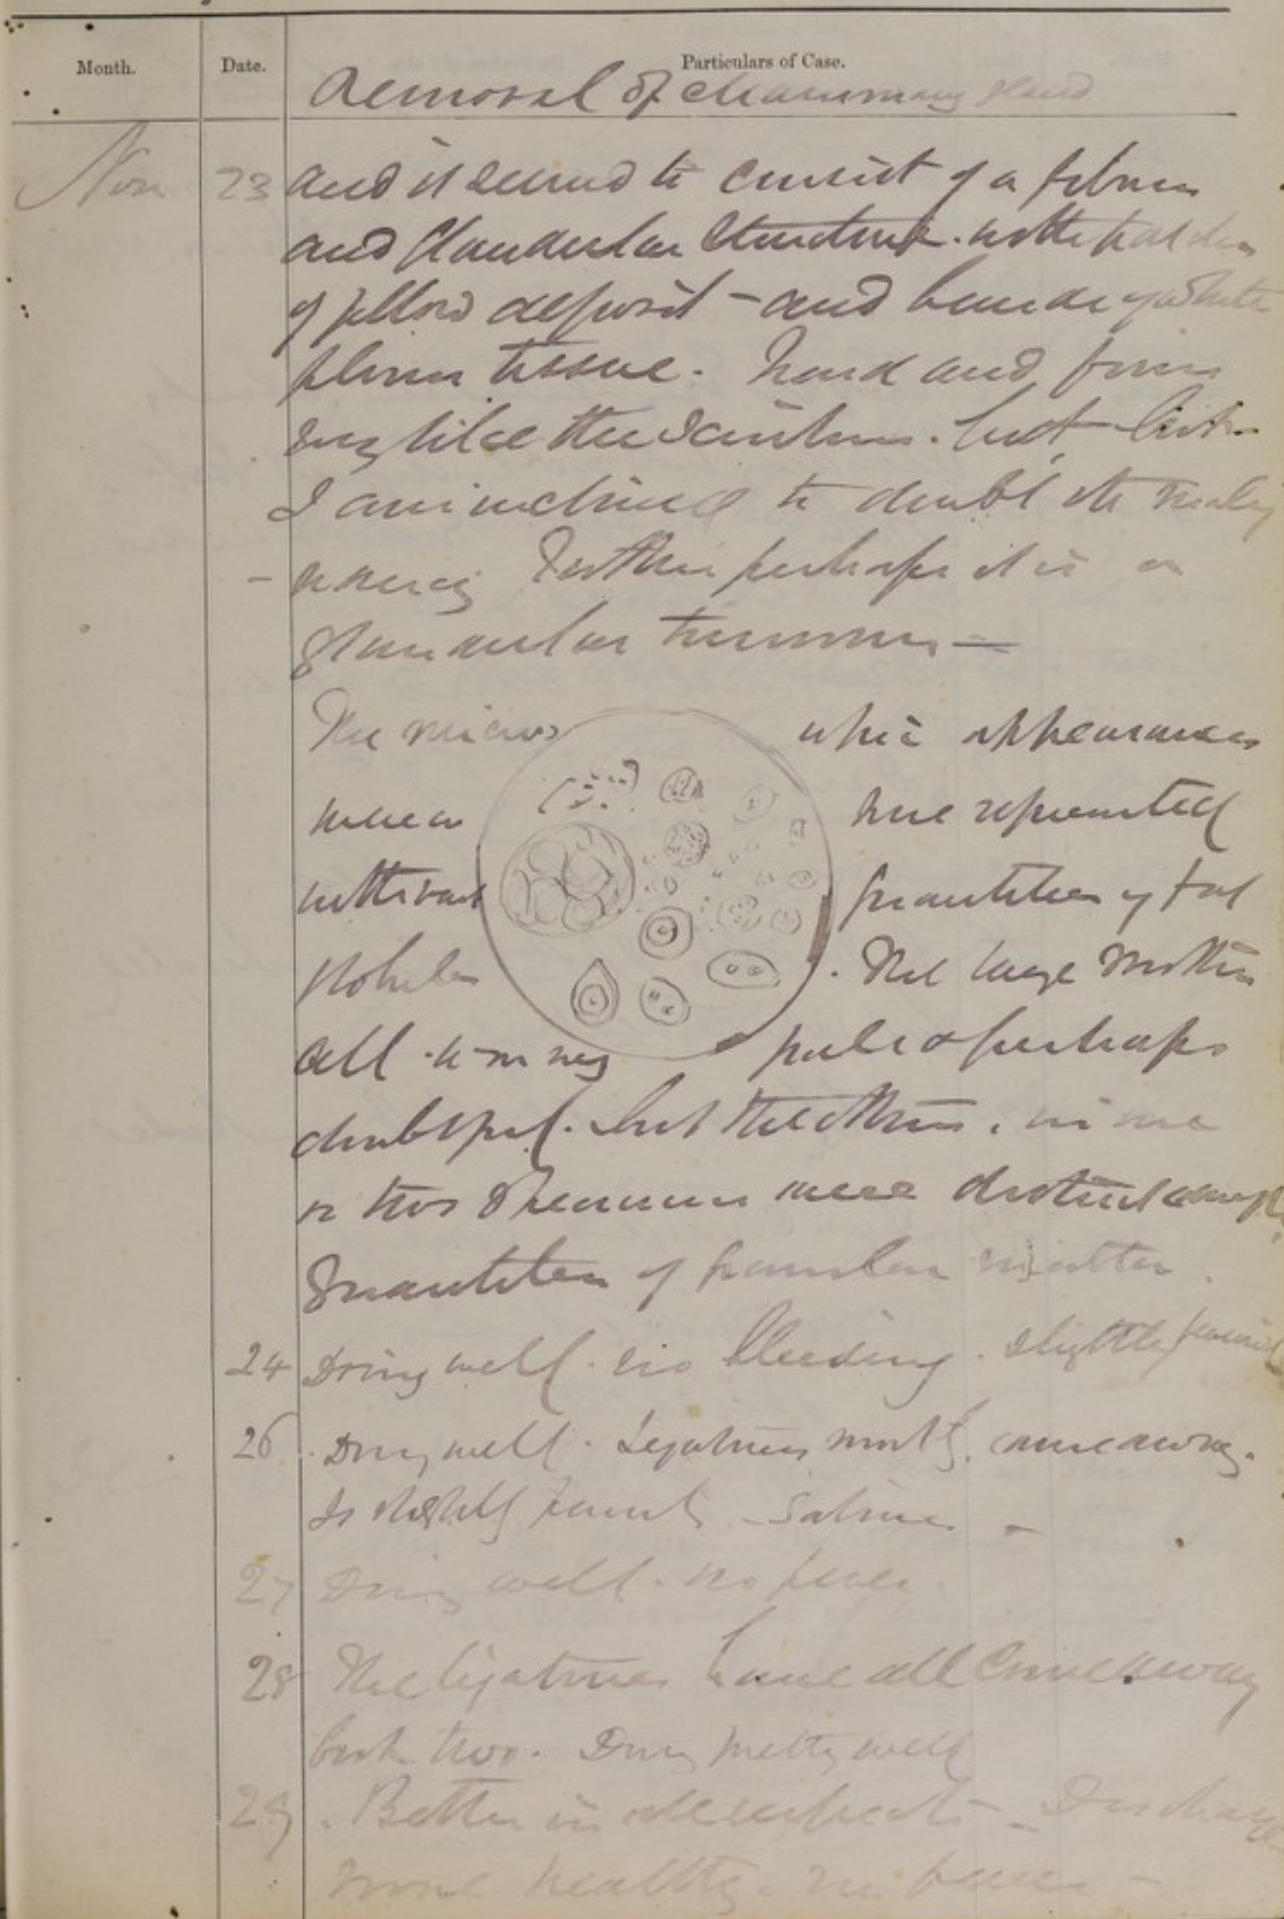 Month. Date. Particulars of Case.
Removal of Mammary gland
Nov 23 and it seemed to consist of a fibrous
and glandular structure. with patches
of yellow deposit - and bands of white
fibrous tissue. Hard and firm
very like the scirrhus. but
I am inclined to doubt its malig
- nancy perhaps it is a
glandular tumour —
The micros copic appearances
were as here represented
with vast quantities of fat
globules. The large mother
cell was very pale & perhaps
doubtful. but the others, in one
or two specimens were distinct enough
Quantities of granular matter.
24 Doing well. no bleeding. slightly feverish
26. Doing well. Ligatures mostly came away.
Is slightly feverish - Salines -
27 Doing well. no fever.
28 The ligatures have all come away
but two. Doing pretty well
29. Better in all respects - Discharge
more healthy. no fever -